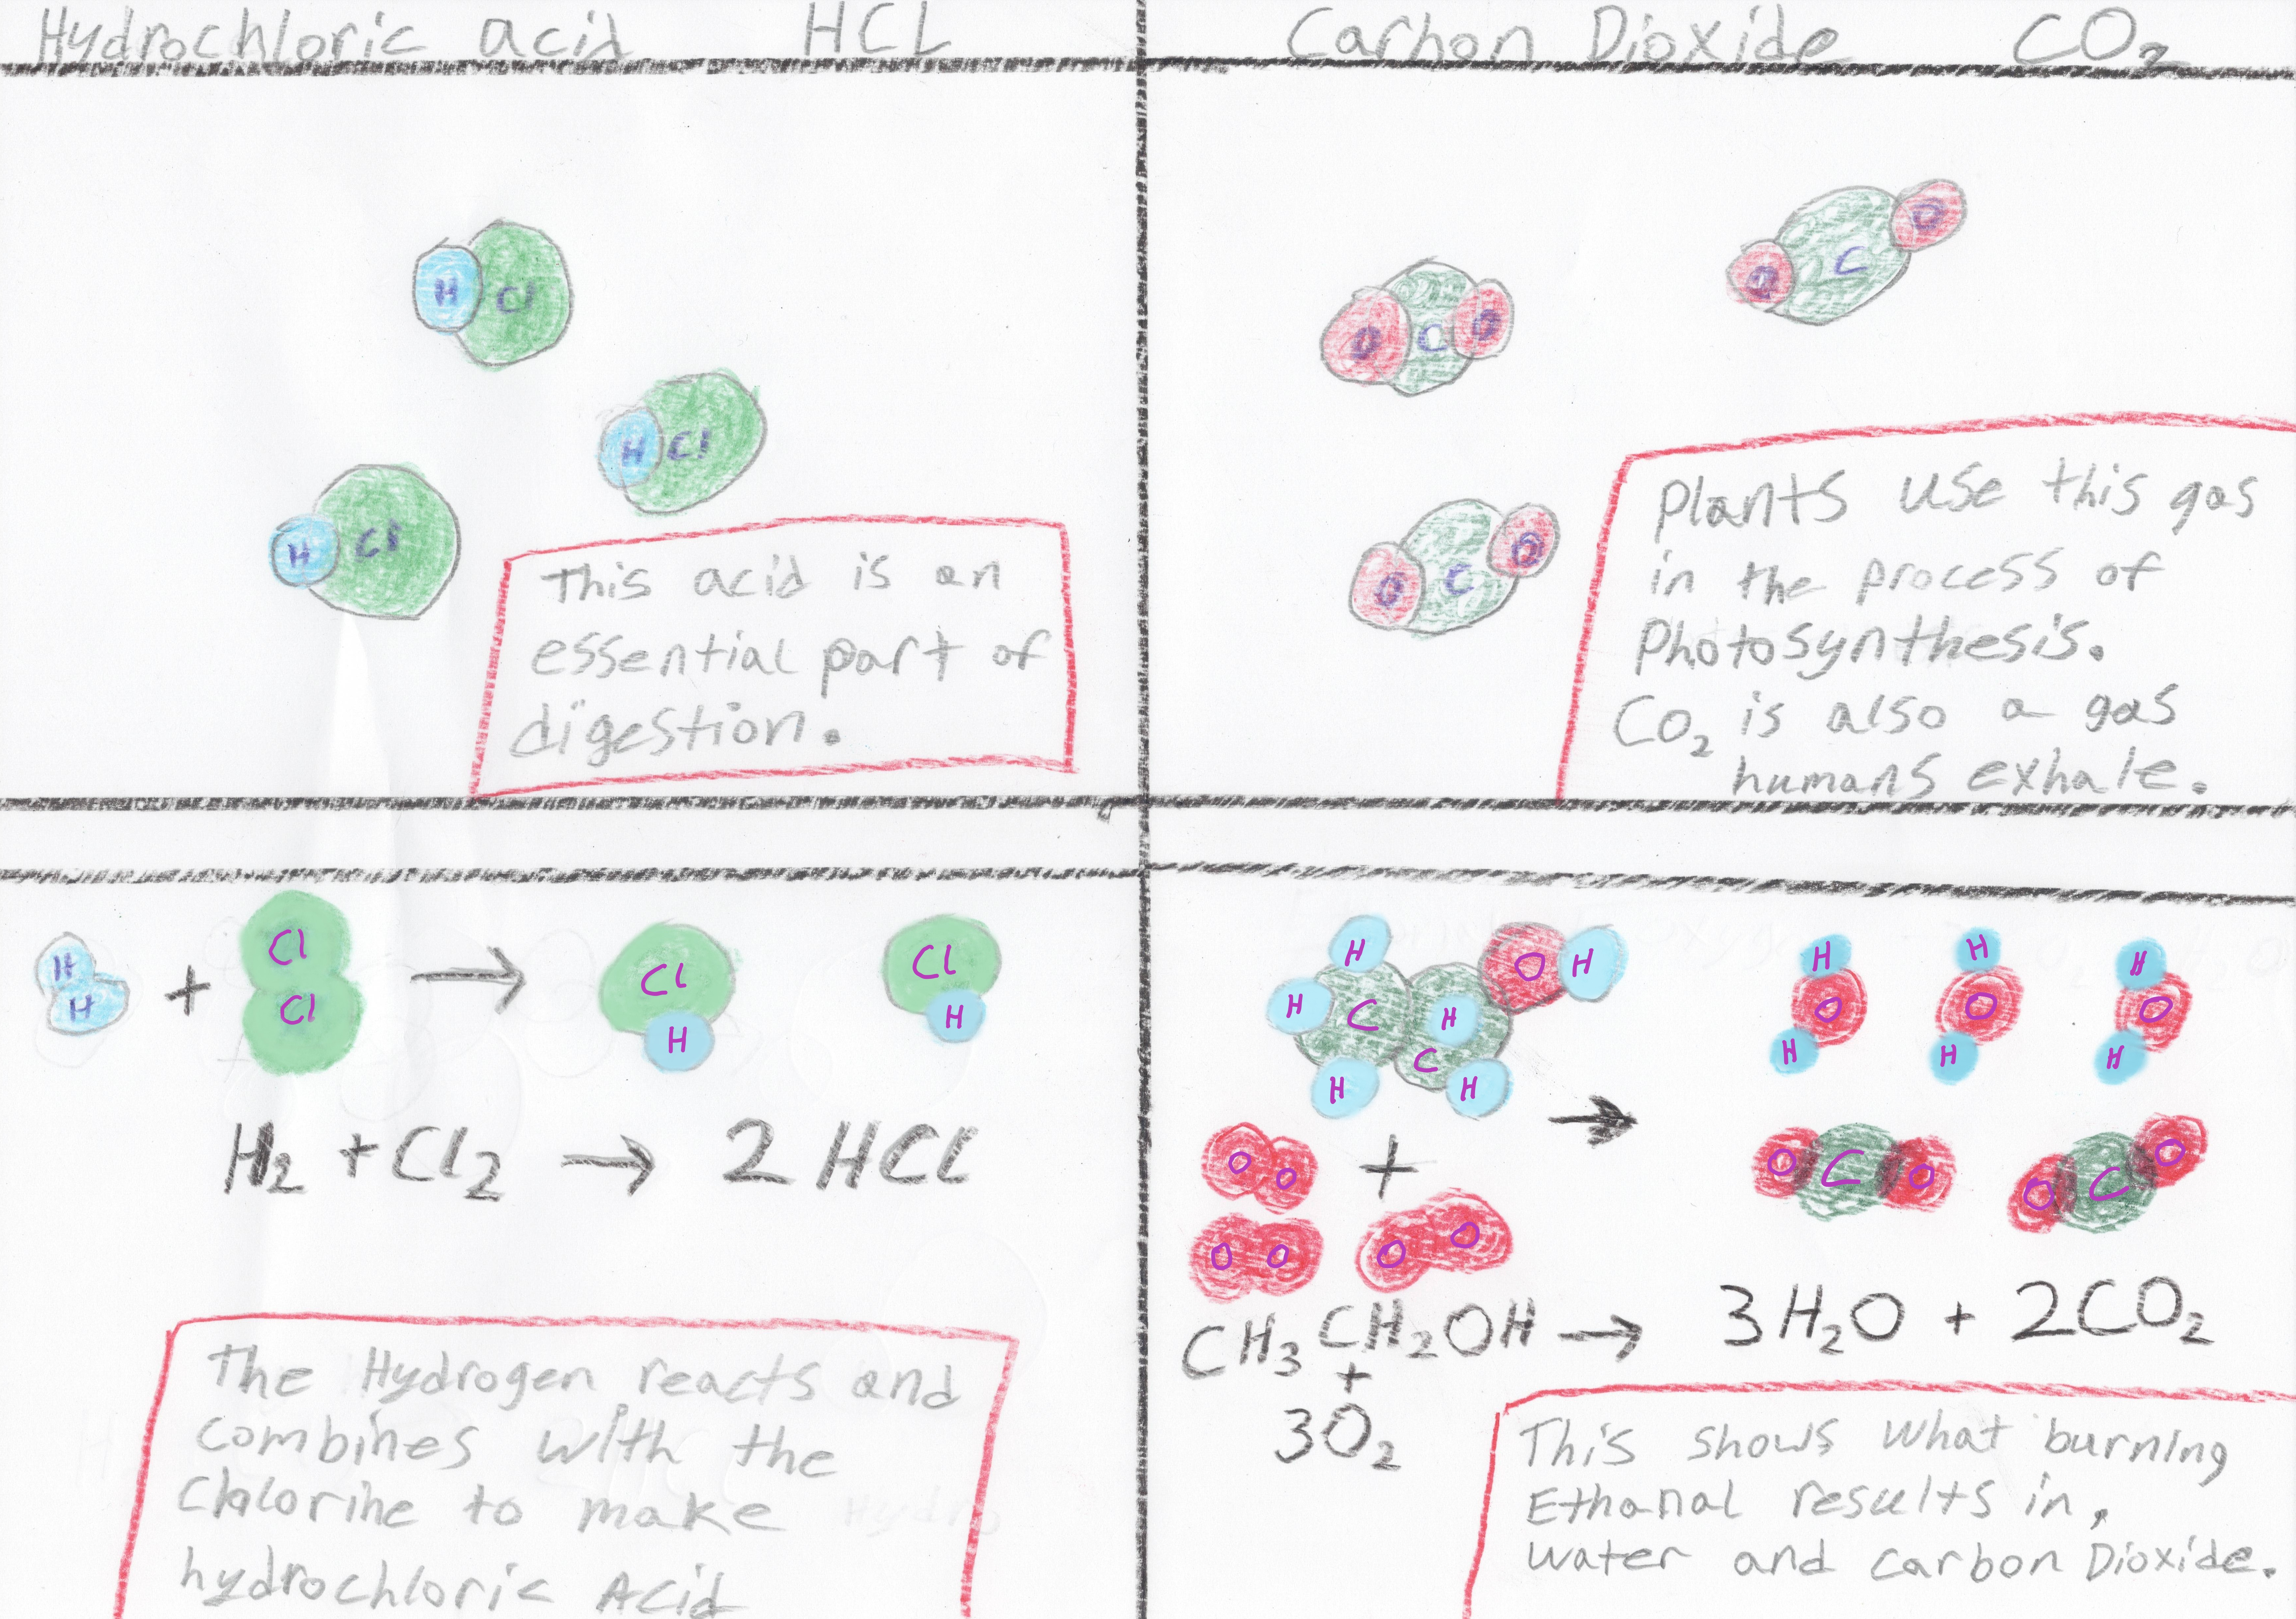 Hydrochloric acid HCL
H Cl
H Cl
H Cl
This acid is an
essential part of
digestion.
Carbon Dioxide CO₂
O C O
O C O
O C O
Plants use this gas
in the process of
Photosynthesis.
CO₂ is also a gas
humans exhale.
H
H
+
Cl
Cl
→
Cl
H
Cl
H
H₂ + Cl₂ → 2 HCl
The Hydrogen reacts and
combines with the
Chlorine to make
hydrochloric Acid
H
H
C
H
H
C
H
O
H
+
O O
O O
O O
→
H
O
H
H
O
H
H
O
H
O C O
O C O
CH₃ CH₂OH → 3H₂O + 2CO₂
+
3O₂
This shows what burning
Ethanal results in,
water and carbon Dioxide.